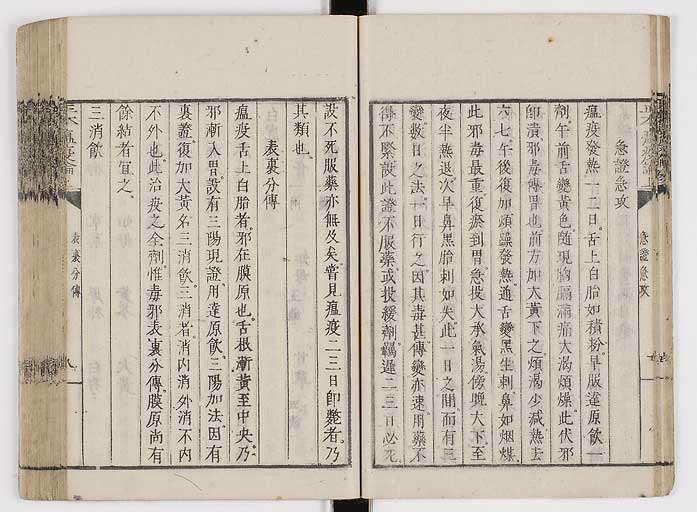 急證急攻
瘟疫發熱一二日。舌上白胎如積粉。早服達原飲一
劑午前舌變黃色。隨現胸膈滿痛大渴煩燥。此伏邪
即潰邪毒傳胃也前方加大黃下之煩渴少減熱去
六七午後復加煩躁發熱。通舌變黑生刺鼻如烟煤
此邪毒最重復瘀到胃急投大承氣湯傍晚大下至
夜半熱退次早鼻黑胎刺如失此一日之間而有三
變數日之法一日行之因其毒甚傳變亦速用藥不
得不緊設此證不服藥或投緩劑羈遲二三日必死
設不死服藥亦無及矣嘗見瘟疫二三日即斃者。乃
其類也。
表裏分傳
瘟疫舌上白胎者。邪在膜原也。舌根漸黃至中央。乃
邪漸入胃設有三陽現證。用達原飲。三陽加法。因有
裏證復加大黃名三消飲。三消者消內消外消不內
不外也此治疫之全劑惟毒邪表裏分傳。膜原尚有
餘結者宜之。
三消飲
急證急攻
表裏分傳